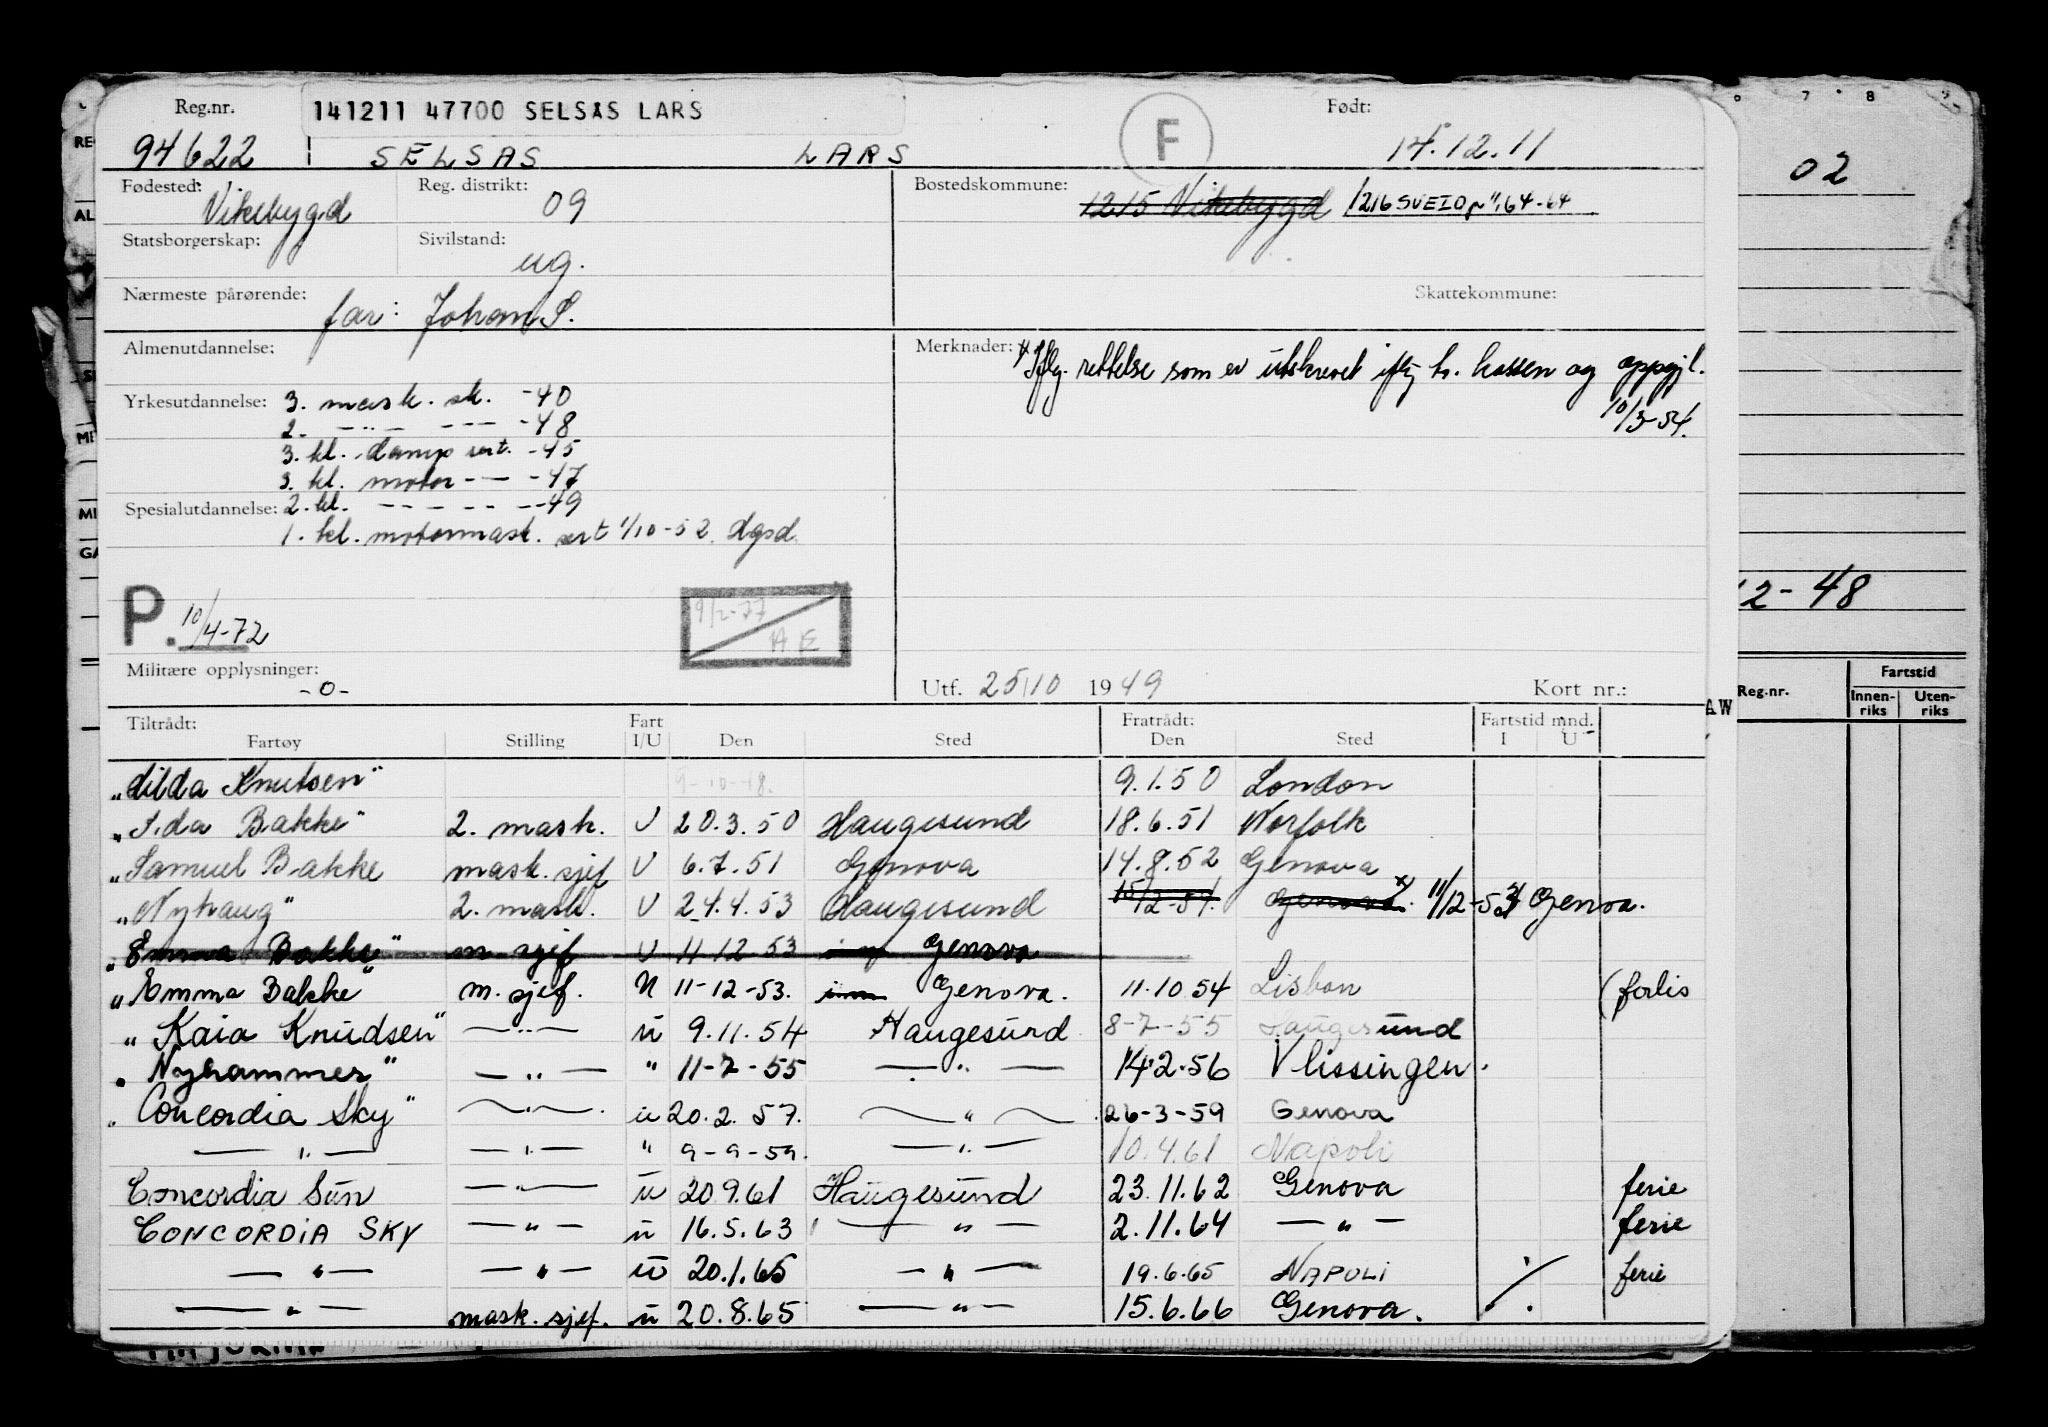 Reg.nr. 141211 47700 SELSÅS LARS Født:
94622 SELSÅS LARS F 14.12.11
Fødested: Vikebygd Reg. distrikt: 09 Bostedskommune: 1215 Vikebygd 1216 SVEIO 64-64
Statsborgerskap: Sivilstand: ug.
Nærmeste pårørende: far: Johan S. Skattekommune:
Almenutdannelse: Merknader: x Iflg. rettelse som er utskrevet iflg br. kassen og oppgjl.
10/3-54.
Yrkesutdannelse: 3. mask. sk. -40
2. -"- --- -48
3. kl. damp sert. -45
3. kl. motor -- - -47
Spesialutdannelse: 2. kl. - - - - - -49
1. kl. motormask. sert 1/10-52. Hgsd.
P. 10/4-72 9/2-77 AE
Militære opplysninger: -0- Utf. 25/10 1949 Kort nr.:
Tiltrådt: Fart Fratrådt: Fartstid mnd.
Fartøy Stilling I/U Den Sted Den Sted I U
"Hilda Knutsen" 9-10-48. 9.1.50 London
"Ida Bakke" 2. mask. U 20.3.50 Haugesund 18.6.51 Norfolk
"Samuel Bakke mask. sjef U 6.7.51 Genova 14.8.52 Genova
"Nyhaug" 2. mask. U 24.4.53 Haugesund 15/12-54. Genova. x 11/12-53 Genova.
"Emma Bakke" m. sjef U 11-12-53 Genova
"Emma Bakke" m. sjef. U 11-12-53. Genova. 11.10.54 Lisbon (forlis
"Kaia Knudsen" -"- u 9.11.54 Haugesund 8-7-55 Haugesund
"Nyhammer" -"- " 11-7-55 -"- 14.2.56 Vlissingen.
"Concordia Sky" -"- u 20.2.57. -"- 26-3-59 Genova
-"- -"- " 9-9-59. -"- 10.4.61 Napoli
Concordia Sun -"- u 20.9.61 Haugesund 23.11.62 Genova ferie
CONCORDIA SKY -"- u 16.5.63 -"- 2.11.64 -"- ferie
-"- -"- u 20.1.65 -"- 19.6.65 NAPOLI ferie
-"- mask. sjef. u 20.8.65 -"- 15.6.66 Genova.
7 8
02
12-48
Fartstid
Reg.nr. Innen-riks Uten-riks
AW